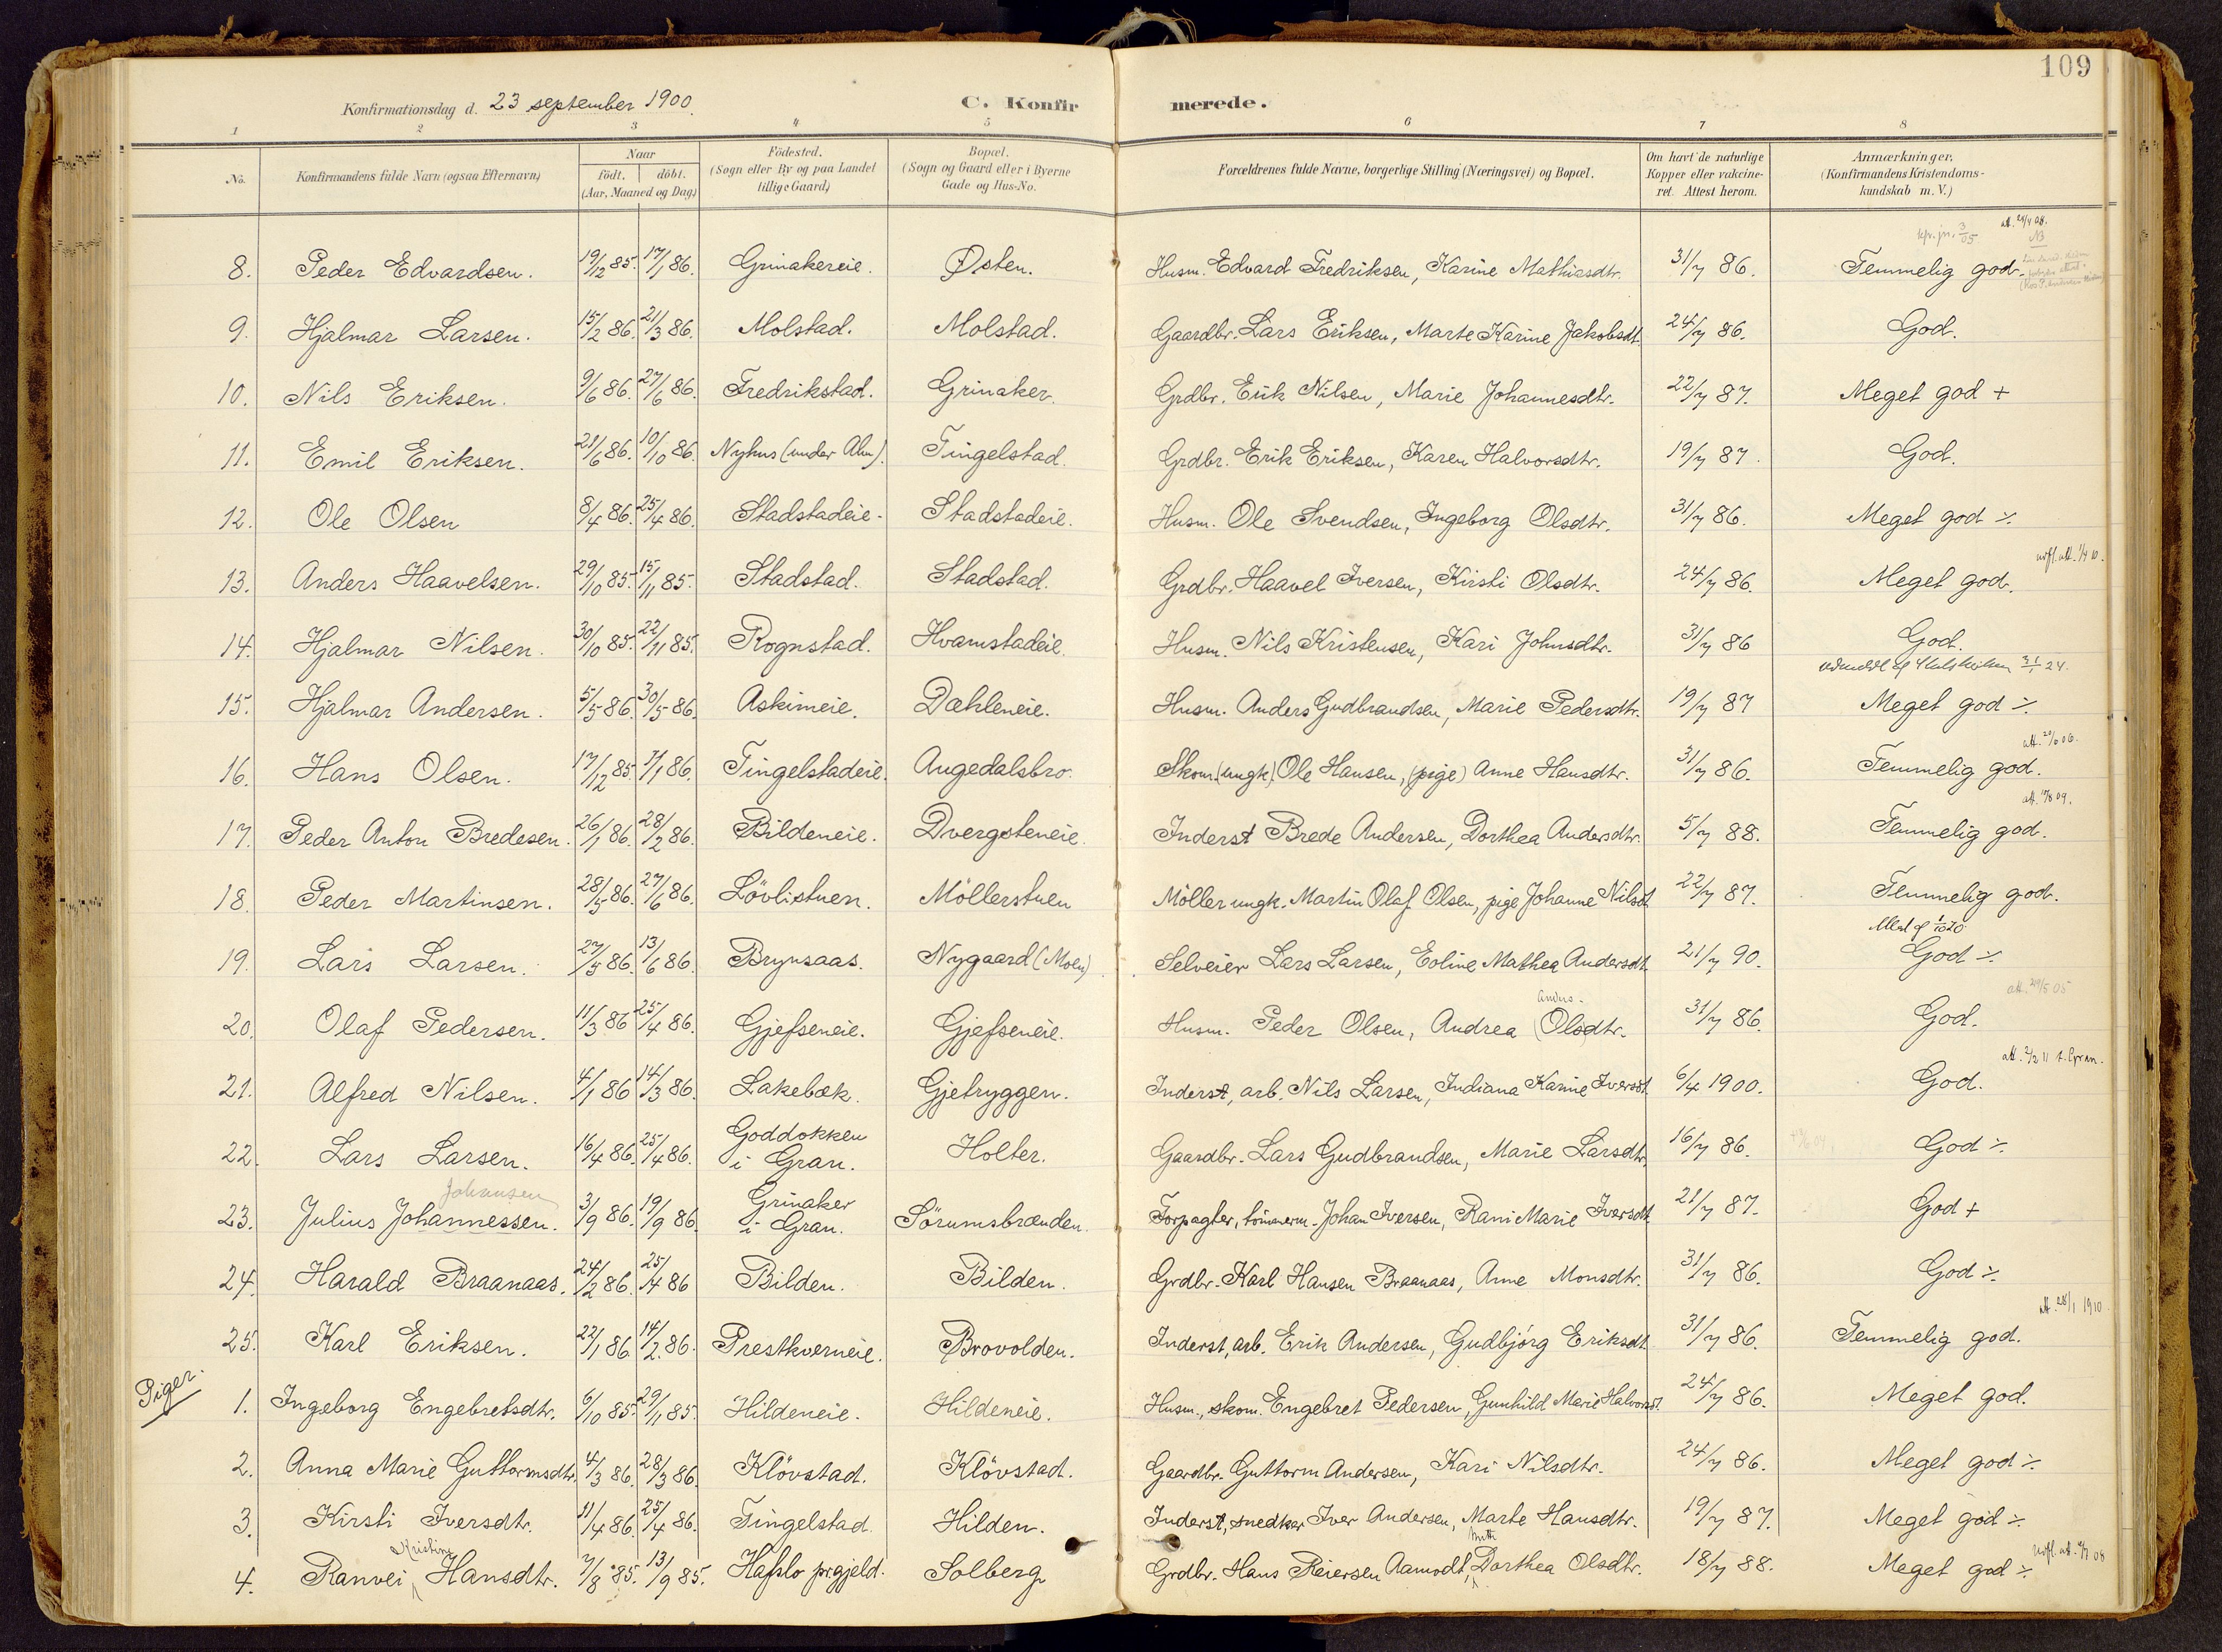 109
Konfirmationsdag d. 23 september 1900. C. Konfirmerede.
1 2 3 4 5 6 7 8
No. Konfirmandens fulde Navn (ogsaa Efternavn) Naar födt. döbt. (Aar, Maaned og Dag) Födested. (Sogn eller By og paa Landet tillige Gaard) Bopæl. (Sogn og Gaard eller i Byerne Gade og Hus-No. Forældrenes fulde Navne, borgerlige Stilling (Næringsvei) og Bopæl. Om havt de naturlige Kopper eller vakcineret. Attest herom. Anmærkninger. (Konfirmandens Kristendomskundskab m. V.)
kpr. jn. 3/05 att. 29/4 08. NB
8. Peder Edvardsen. 19/12 85. 17/1 86. Grinakereie. Østen. Husm. Edvard Fredriksen, Karine Mathiasdtr. 31/7 86. Temmelig god.
9. Hjalmar Larsen. 15/2 86. 21/3 86. Molstad. Molstad. Gaardbr. Lars Eriksen, Marte Karine Jakobsdt. 24/7 86. God.
10. Nils Eriksen. 9/6 86. 27/6 86. Fredrikstad. Grinaker. Grdbr. Erik Nilsen, Marie Johannesdtr. 22/7 87. Meget god +
11. Emil Eriksen. 21/6 86. 10/10 86. Nyhus (under Alm). Tingelstad. Grdbr. Erik Eriksen, Karen Halvorsdtr. 19/7 87. God.
12. Ole Olsen 8/4 86. 25/4 86. Stadstadeie. Stadstadeie. Husm. Ole Svendsen, Ingeborg Olsdtr. 31/7 86. Meget god ⁒
13. Anders Haavelsen. 29/10 85. 15/11 85. Stadstad. Stadstad. Grdbr. Haavel Iversen, Kirsti Olsdtr. 24/7 86. Meget god.
14. Hjalmar Nilsen. 30/10 85. 22/11 85. Rognstad. Hvamstadeie. Husm. Nils Kristensen, Kari Johnsdtr. 31/7 86 God.
15. Hjalmar Andersen. 5/5 86. 30/5 86. Askimeie. Dæhleneie. Husm. Anders Gudbrandsen, Marie Pedersdtr. 19/7 87 Meget god ⁒
16. Hans Olsen. 17/12 85. 7/1 86. Tingelstadeie. Augedalsbro. Skom. (ungk) Ole Hansen, (pige) Anne Hansdtr. 31/7 86. Temmelig god.
17. Peder Anton Bredesen. 26/1 86. 28/2 86. Bildeneie. Dvergsteneie. Inderst Brede Andersen, Dorthea Andersdtr. 5/7 88. Temmelig god.
18. Peder Martinsen. 28/5 86. 27/6 86. Lövlistuen. Möllerstuen Möller ungk. Martin Olaf Olsen, pige Johanne Nilsdt. 22/7 87. Temmelig god.
19. Lars Larsen. 27/5 86. 13/6 86. Brynsaas. Nygaard (Moen). Selveier Lars Larsen, Eoline Mathea Andersdt. 21/7 90. God ⁒
Anders- att. 29/5 05
20. Olaf Pedersen. 11/3 86 25/4 86. Gjefseneie. Gjefseneie. Husm. Peder Olsen, Andrea (Olsdtr. 31/7 86. God.
att. 2/2 11 t. Gran.
21. Alfred Nilsen. 4/1 86 14/3 86. Lakebæk. Gjetryggen. Inderst, arb. Nils Larsen, Indiana Karine Iversdt. 6/4 1900. God.
22. Lars Larsen. 16/4 86. 25/4 86. Goddokken i Gran. Holter. Gaardbr. Lars Gudbrandsen, Marie Larsdtr. 16/7 86. God ⁒
Johansen
23. Julius Johannessen. 3/9 86. 19/9 86. Grinaker i Gran. Sörumsbrænden. Forpagter, tömmerm. Johan Iversen, Rani Marie Iversdt. 21/7 87. God +
24. Harald Braanaas. 24/2 86. 25/4 86 Bilden. Bilden. Grdbr. Karl Hansen Braanaas, Anne Monsdtr. 31/7 86. God ⁒
att. 28/1 1910.
25. Karl Eriksen. 22/1 86 14/2. 86. Prestkverneie. Brovolden. Inderst, arb. Erik Andersen, Gudbjörg Eriksdt. 31/7 86. Temmelig god.
Piger.
1. Ingeborg Engebretsdtr. 6/10 85. 29/11 85. Hildeneie. Hildeneie. Husm., skom. Engebret Pedersen, Gunhild Marie Halvorsdt. 24/7 86. Meget god.
2. Anna Marie Guttormsdtr. 4/3 86. 28/3 86. Klövstad. Klövstad. Gaardbr. Guttorm Andersen, Kari Nilsdtr. 24/7 86. Meget god ⁒
3. Kirsti Iversdtr. 11/4 86. 25/4 86. Tingelstad. Hilden. Inderst, snedker Iver Andersen, Marte Hansdtr. 19/7 87. Meget god ⁒
Kristine
4. Ranvei Hansdtr. 7/8 85. 13/9 85. Hafslo prgjeld. Solberg Grdbr. Hans Reiersen Aamodt, Dorthea Olsdtr. 18/7 88. Meget god ⁒